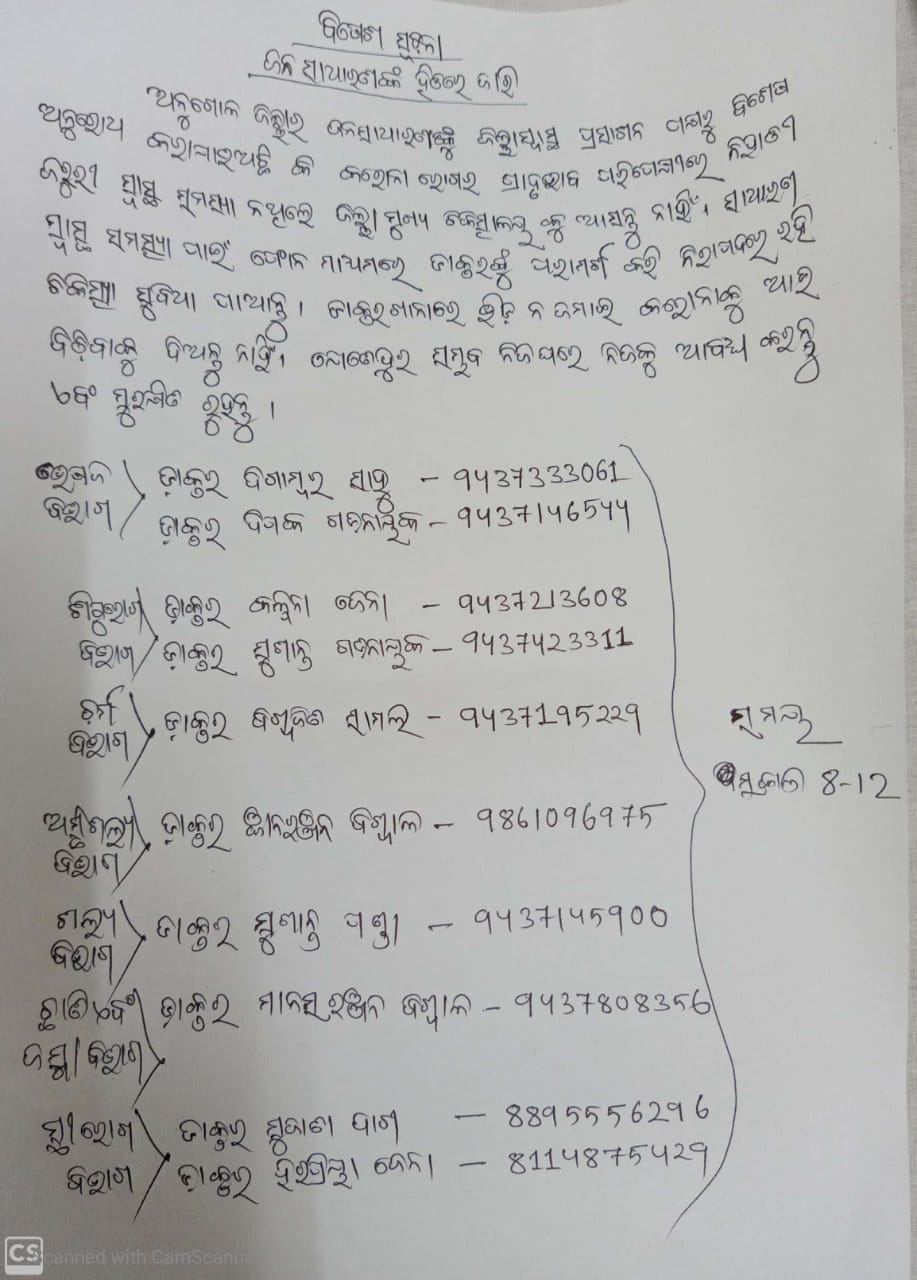 ବିଶେଷ ସୂଚନା
ଜନ ସାଧାରଣଙ୍କ ହିତରେ ଜାରି
ଅନୁଗୋଳ ଜିଲ୍ଲାର ଜନସାଧାରଣଙ୍କୁ ଜିଲ୍ଲାସ୍ବାସ୍ଥ୍ୟ ପ୍ରସାଶନ ପକ୍ଷରୁ ବିଶେଷ
ଅନୁରୋଧ କରାଯାଇଅଛି କି କରୋନା ରୋଗର ପ୍ରାଦୁର୍ଭାବ ପରିପେକ୍ଷୀରେ ନିହାତୀ
ଜରୁରୀ ସ୍ଵାସ୍ଥ୍ୟ ସମସ୍ୟା ନଥିଲେ ଜିଲ୍ଲା ମୁଖ୍ୟ କୁ ଆସନ୍ତୁ ନାହିଁ। ସାଧାରଣ
ସ୍ଵାସ୍ଥ୍ୟ ସମସ୍ୟା ପାଇଁ ଫୋନ ମାଧମରେ ଡାକ୍ତରଙ୍କୁ ପରାମର୍ଶ କରି ନିରାପଦରେ ରହି
ଚିକିତ୍ସା ସୁବିଧା ପାଆନ୍ତୁ। ଡାକ୍ତରଖାନାରେ ଭିଡ଼ ନ ଜମାଇ କରୋନାକୁ ଆଉ
ବଢ଼ିବାକୁ ଦିଅନ୍ତୁ ନାହିଁ। ସମ୍ଭବ ନିଜଘରେ ନିଜକୁ ଆବଦ୍ଧ କରନ୍ତୁ
ଏବଂ ସୁରକ୍ଷିତ ରୁହନ୍ତୁ।
ଭେଷଜ ବିଭାଗ
ଡ଼ାକ୍ତର ଦିଗାମ୍ବର ସାହୁ – 9437333061
ଡ଼ାକ୍ତର ଦିପକ ଗଡନାୟକ – 9437146544
ଶିଶୁରୋଗ ବିଭାଗ
ଡ଼ାକ୍ତର କଳ୍ପନା ଜେନା – 9437213608
ଡ଼ାକ୍ତର ସୁଶାନ୍ତ ଗଡନାୟକ – 9437423311
ଚର୍ମ ବିଭାଗ
ଡ଼ାକ୍ତର ବିଶ୍ଵଜିତ ସାମଲ – 9437195229
ସମୟ
8-12
ଅସ୍ଥିଶଲ୍ୟ ବିଭାଗ
ଡ଼ାକ୍ତର ଜ୍ଞାନରଞ୍ଜନ ବିଶ୍ଵାଳ – 9861096975
ଶଲ୍ୟ ବିଭାଗ
ଡାକ୍ତର ସୁଶାନ୍ତ ପଣ୍ଡା – 9437145900
ଛାତି ଏବଂ ଜକ୍ଷ୍ମା ବିଭାଗ
ଡ଼ାକ୍ତର ମାନସରଞ୍ଜନ ବିଶ୍ଵାଳ – 9437808356
ସ୍ତ୍ରୀରୋଗ ବିଭାଗ
ଡାକ୍ତର ସୁଜାତା ଦାଶ – 8895556296
ଡ଼ାକ୍ତର ହରପ୍ରିୟା ଜେନା – 8114875429
CS
Scanned with CamScanne